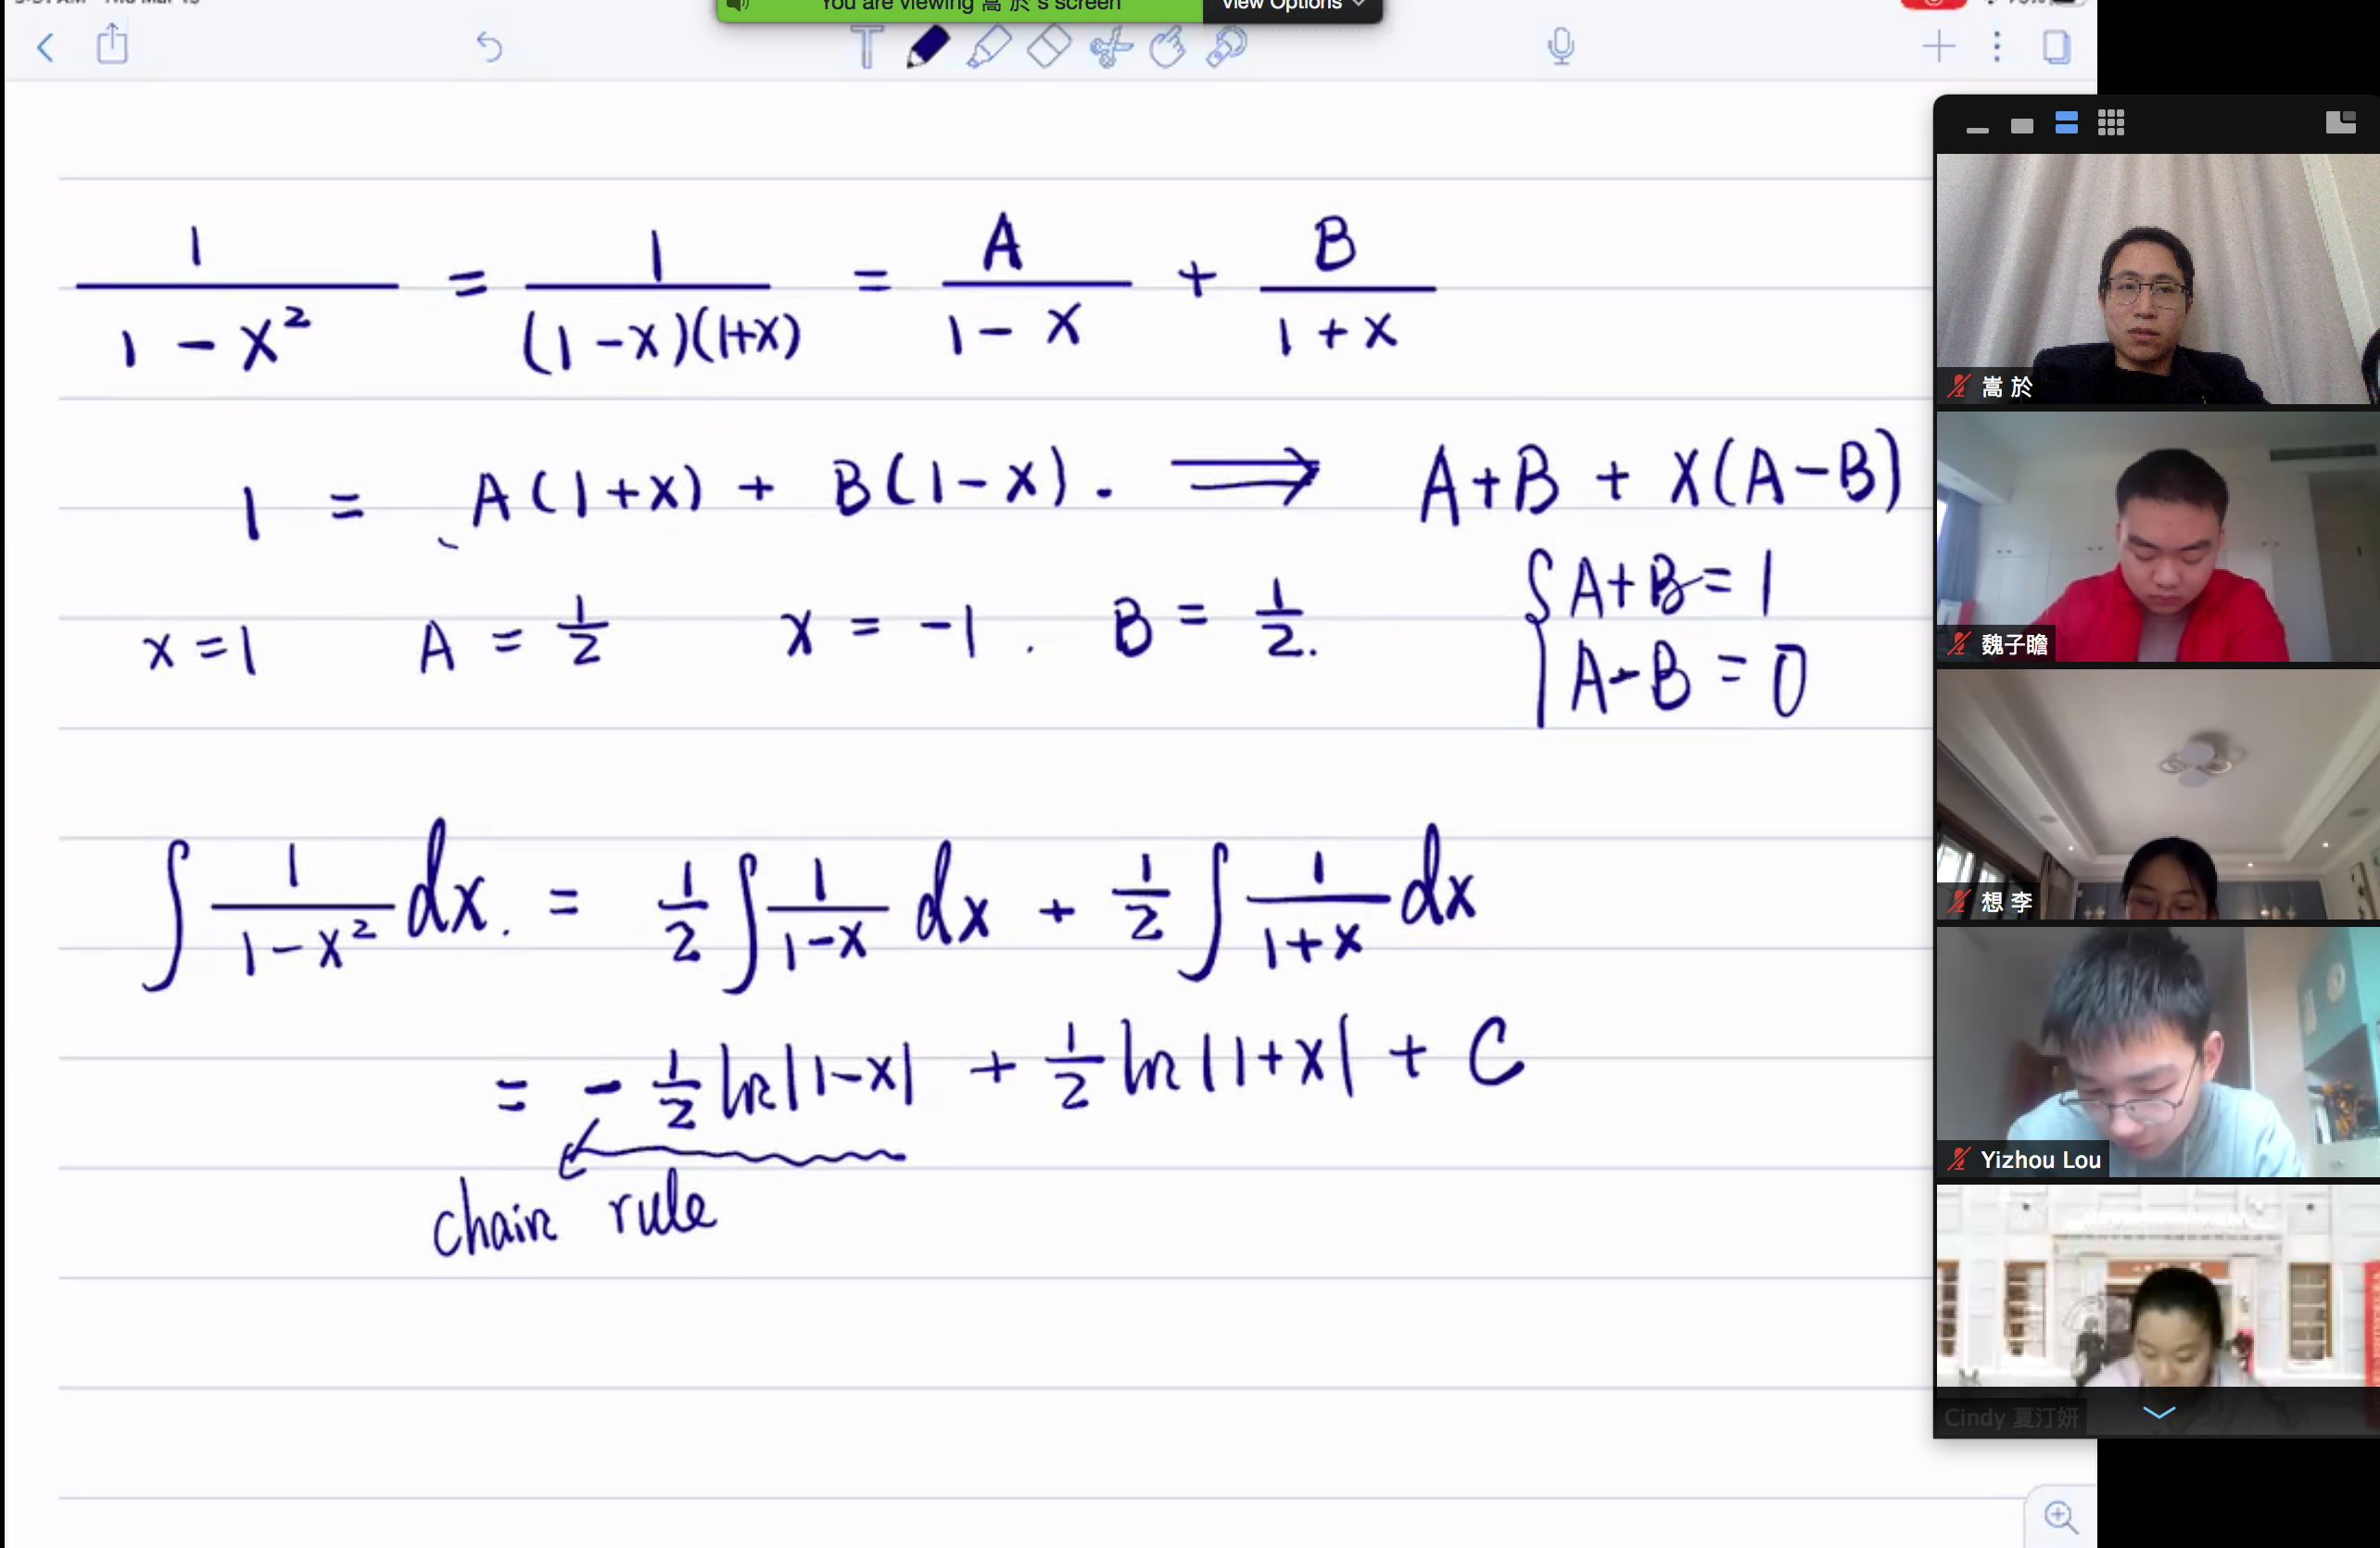 You are viewing 嵩 於's screen
View Options
1/(1 - x²) = 1/((1 - x)(1+x)) = A/(1 - x) + B/(1 + x)
1 = A(1+x) + B(1-x). ⟹ A+B + x(A-B)
x=1 A = 1/2 x = -1. B = 1/2.
{ A+B = 1
A-B = 0
∫ 1/(1-x²) dx. = 1/2 ∫ 1/(1-x) dx + 1/2 ∫ 1/(1+x) dx
= - 1/2 ln|1-x| + 1/2 ln|1+x| + C
chain rule
嵩 於
魏子瞻
想 李
Yizhou Lou
Cindy 夏汀妍